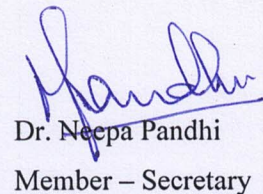 Pandhi
Dr. Neepa Pandhi
Member – Secretary